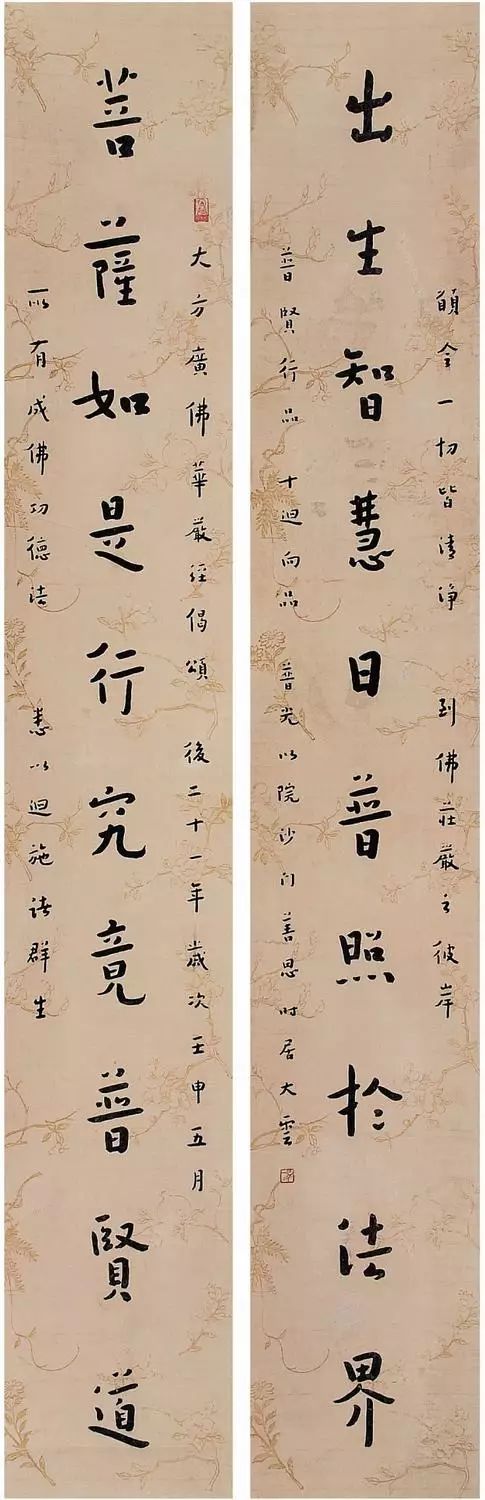 願令一切皆清淨 到佛莊嚴之彼岸
出生智慧日普照於法界
普賢行品 十迴向品 普光明院沙門善思時居大雲
大方廣佛華嚴經偈頌 後二十一年歲次壬申五月
菩薩如是行究竟普賢道
所有成佛功德法 悉以迴施諸群生